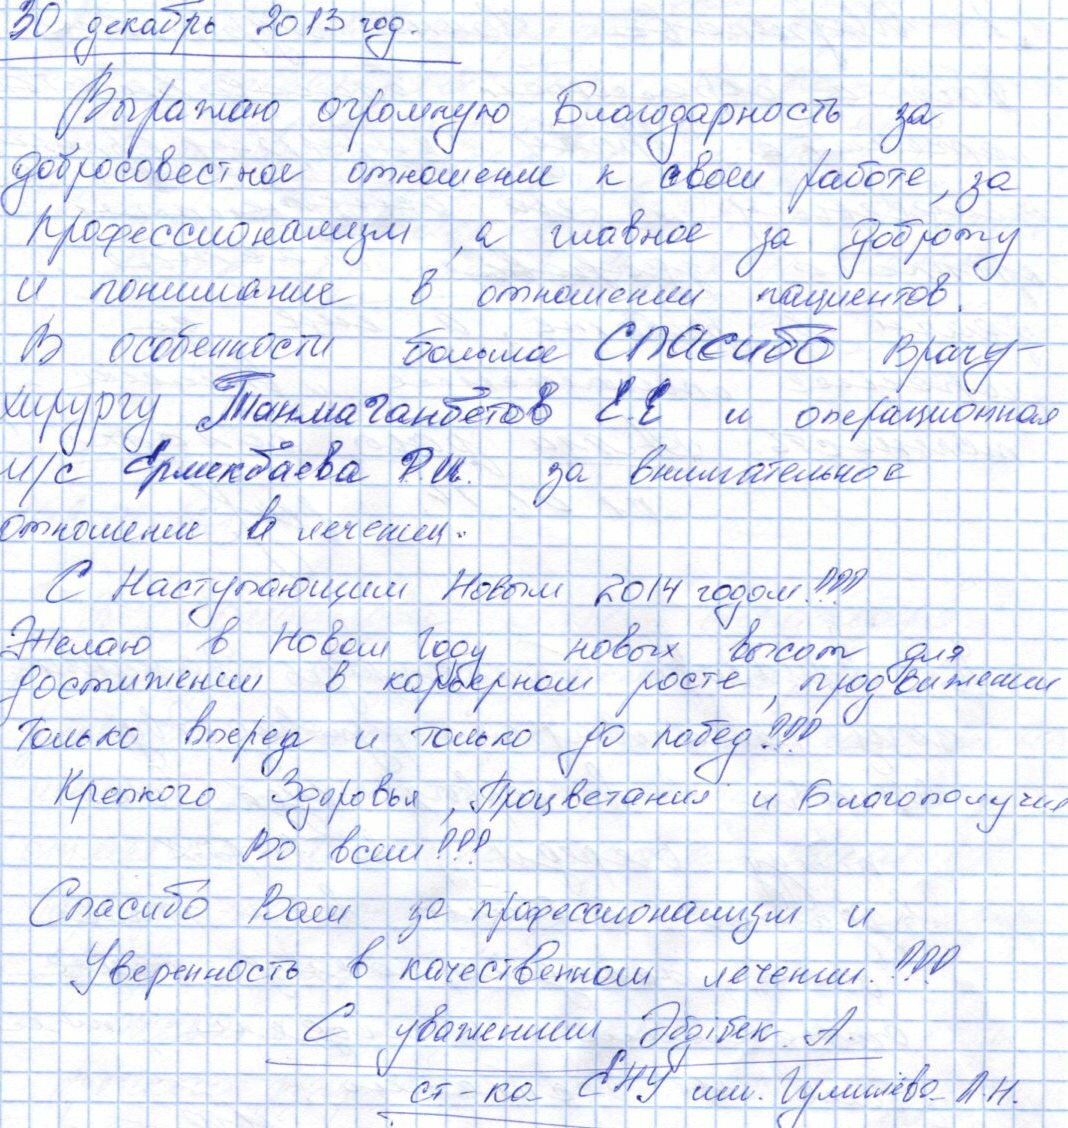 30 декабрь 2013 год.
Выражаю огромную Благодарность за
добросовестное отношение к своей работе, за
профессионализм, а главное за доброту
и понимание в отношении пациентов.
В особенности большое СПАСИБО Врачу-
хирургу Танмаганбетов Е.Е и операционная
м/с Ермекбаева Р.И. за внимательное
отношение в лечении.
С Наступающим Новым 2014 годом!!!
Желаю в Новом Году новых высот для
достижении в карьерном росте, продвижении
только вперед и только до побед!!!
Крепкого Здоровья, Процветания и Благополучия
Во всем!!!
Спасибо Вам за профессионализм и
Уверенность в качественном лечении.!!!
С уважением Әбдібек. А.
ст-ка ЕНУ им. Гумилёва Л.Н.